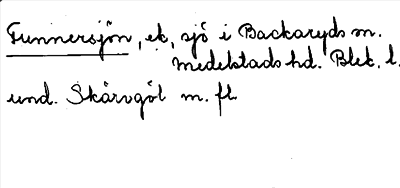 Gunnersjön, ek, sjö i Backaryds sn.
Medelstads hd. Blek. l.
und. Skärvgöl m. fl.